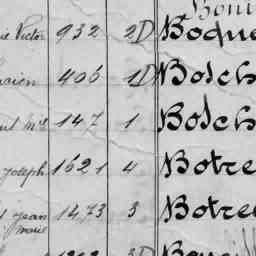 Victor 932 2D Boque
406 1D Bolch
147 1 Bolch
Joseph 1621 4 Botre
Jean 1473 3 Botre
Marie